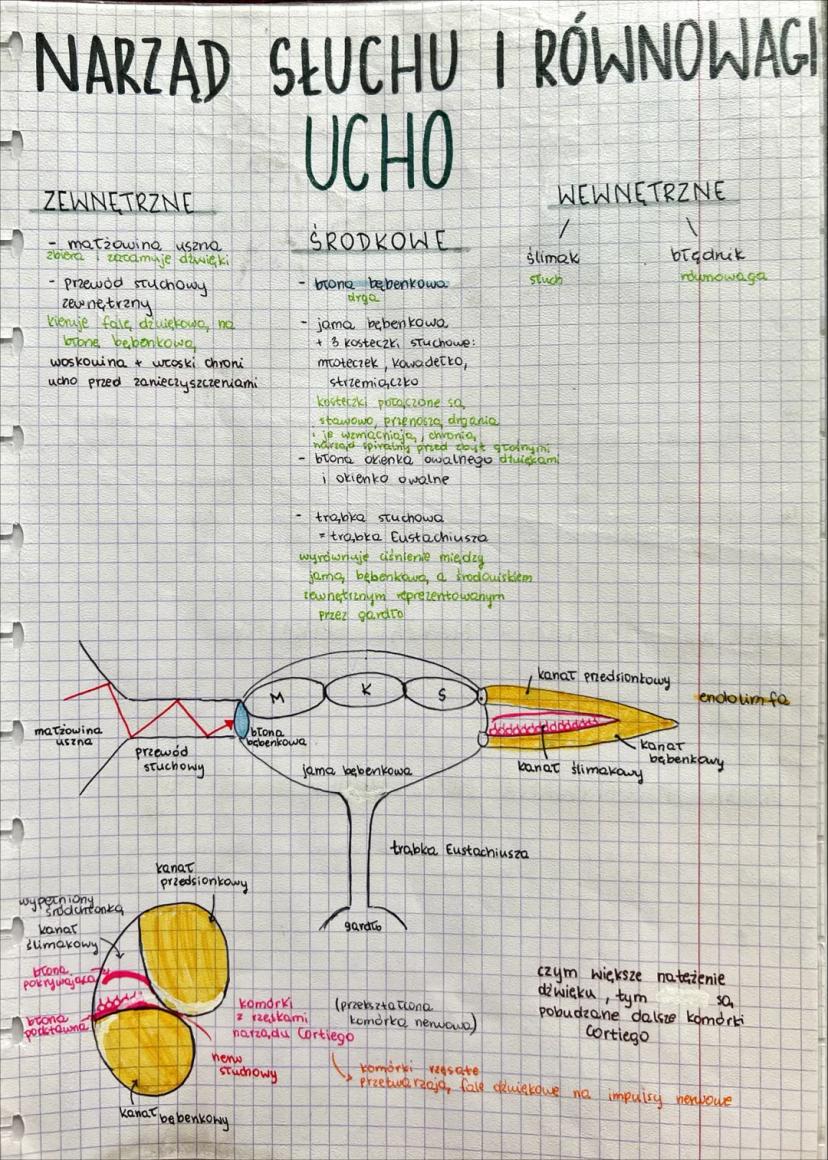 NARZĄD SŁUCHU I RÓWNOWAGI
UCHO
ZEWNĘTRZNE
- małżowina uszna
zbiera i załamuje dźwięki
- przewód słuchowy
zewnętrzny
kieruje falę dźwiękową na
błonę bębenkową
woskowina + włoski chroni
ucho przed zanieczyszczeniami
ŚRODKOWE
- błona bębenkowa
drga
- jama bębenkowa
+ 3 kosteczki słuchowe:
młoteczek, kowadełko,
strzemiączko
kosteczki połączone są
stawowo, przenoszą drgania
i je wzmacniają, chronią
narząd spiralny przed zbyt głośnymi
dźwiękami
- błona okienka owalnego
i okienko owalne
- trąbka słuchowa
= trąbka Eustachiusza
wyrównuje ciśnienie między
jamą bębenkową a środowiskiem
zewnętrznym reprezentowanym
przez gardło
WEWNĘTRZNE
ślimak
słuch
błędnik
równowaga
małżowina
uszna
przewód
słuchowy
błona
bębenkowa
M
K
S
jama bębenkowa
kanał przedsionkowy
endolimfa
kanał
bębenkowy
kanał ślimakowy
trąbka Eustachiusza
gardło
kanał
przedsionkowy
wypełniony
śródchłonką
kanał
ślimakowy
błona
pokrywająca
błona
podstawna
komórki
z rzęskami
narządu Cortiego
(przekształcona
komórka nerwowa)
nerw
słuchowy
kanał bębenkowy
komórki rzęsate
przetwarzają fale dźwiękowe na impulsy nerwowe
czym większe natężenie
dźwięku, tym są
pobudzane dalsze komórki
Cortiego